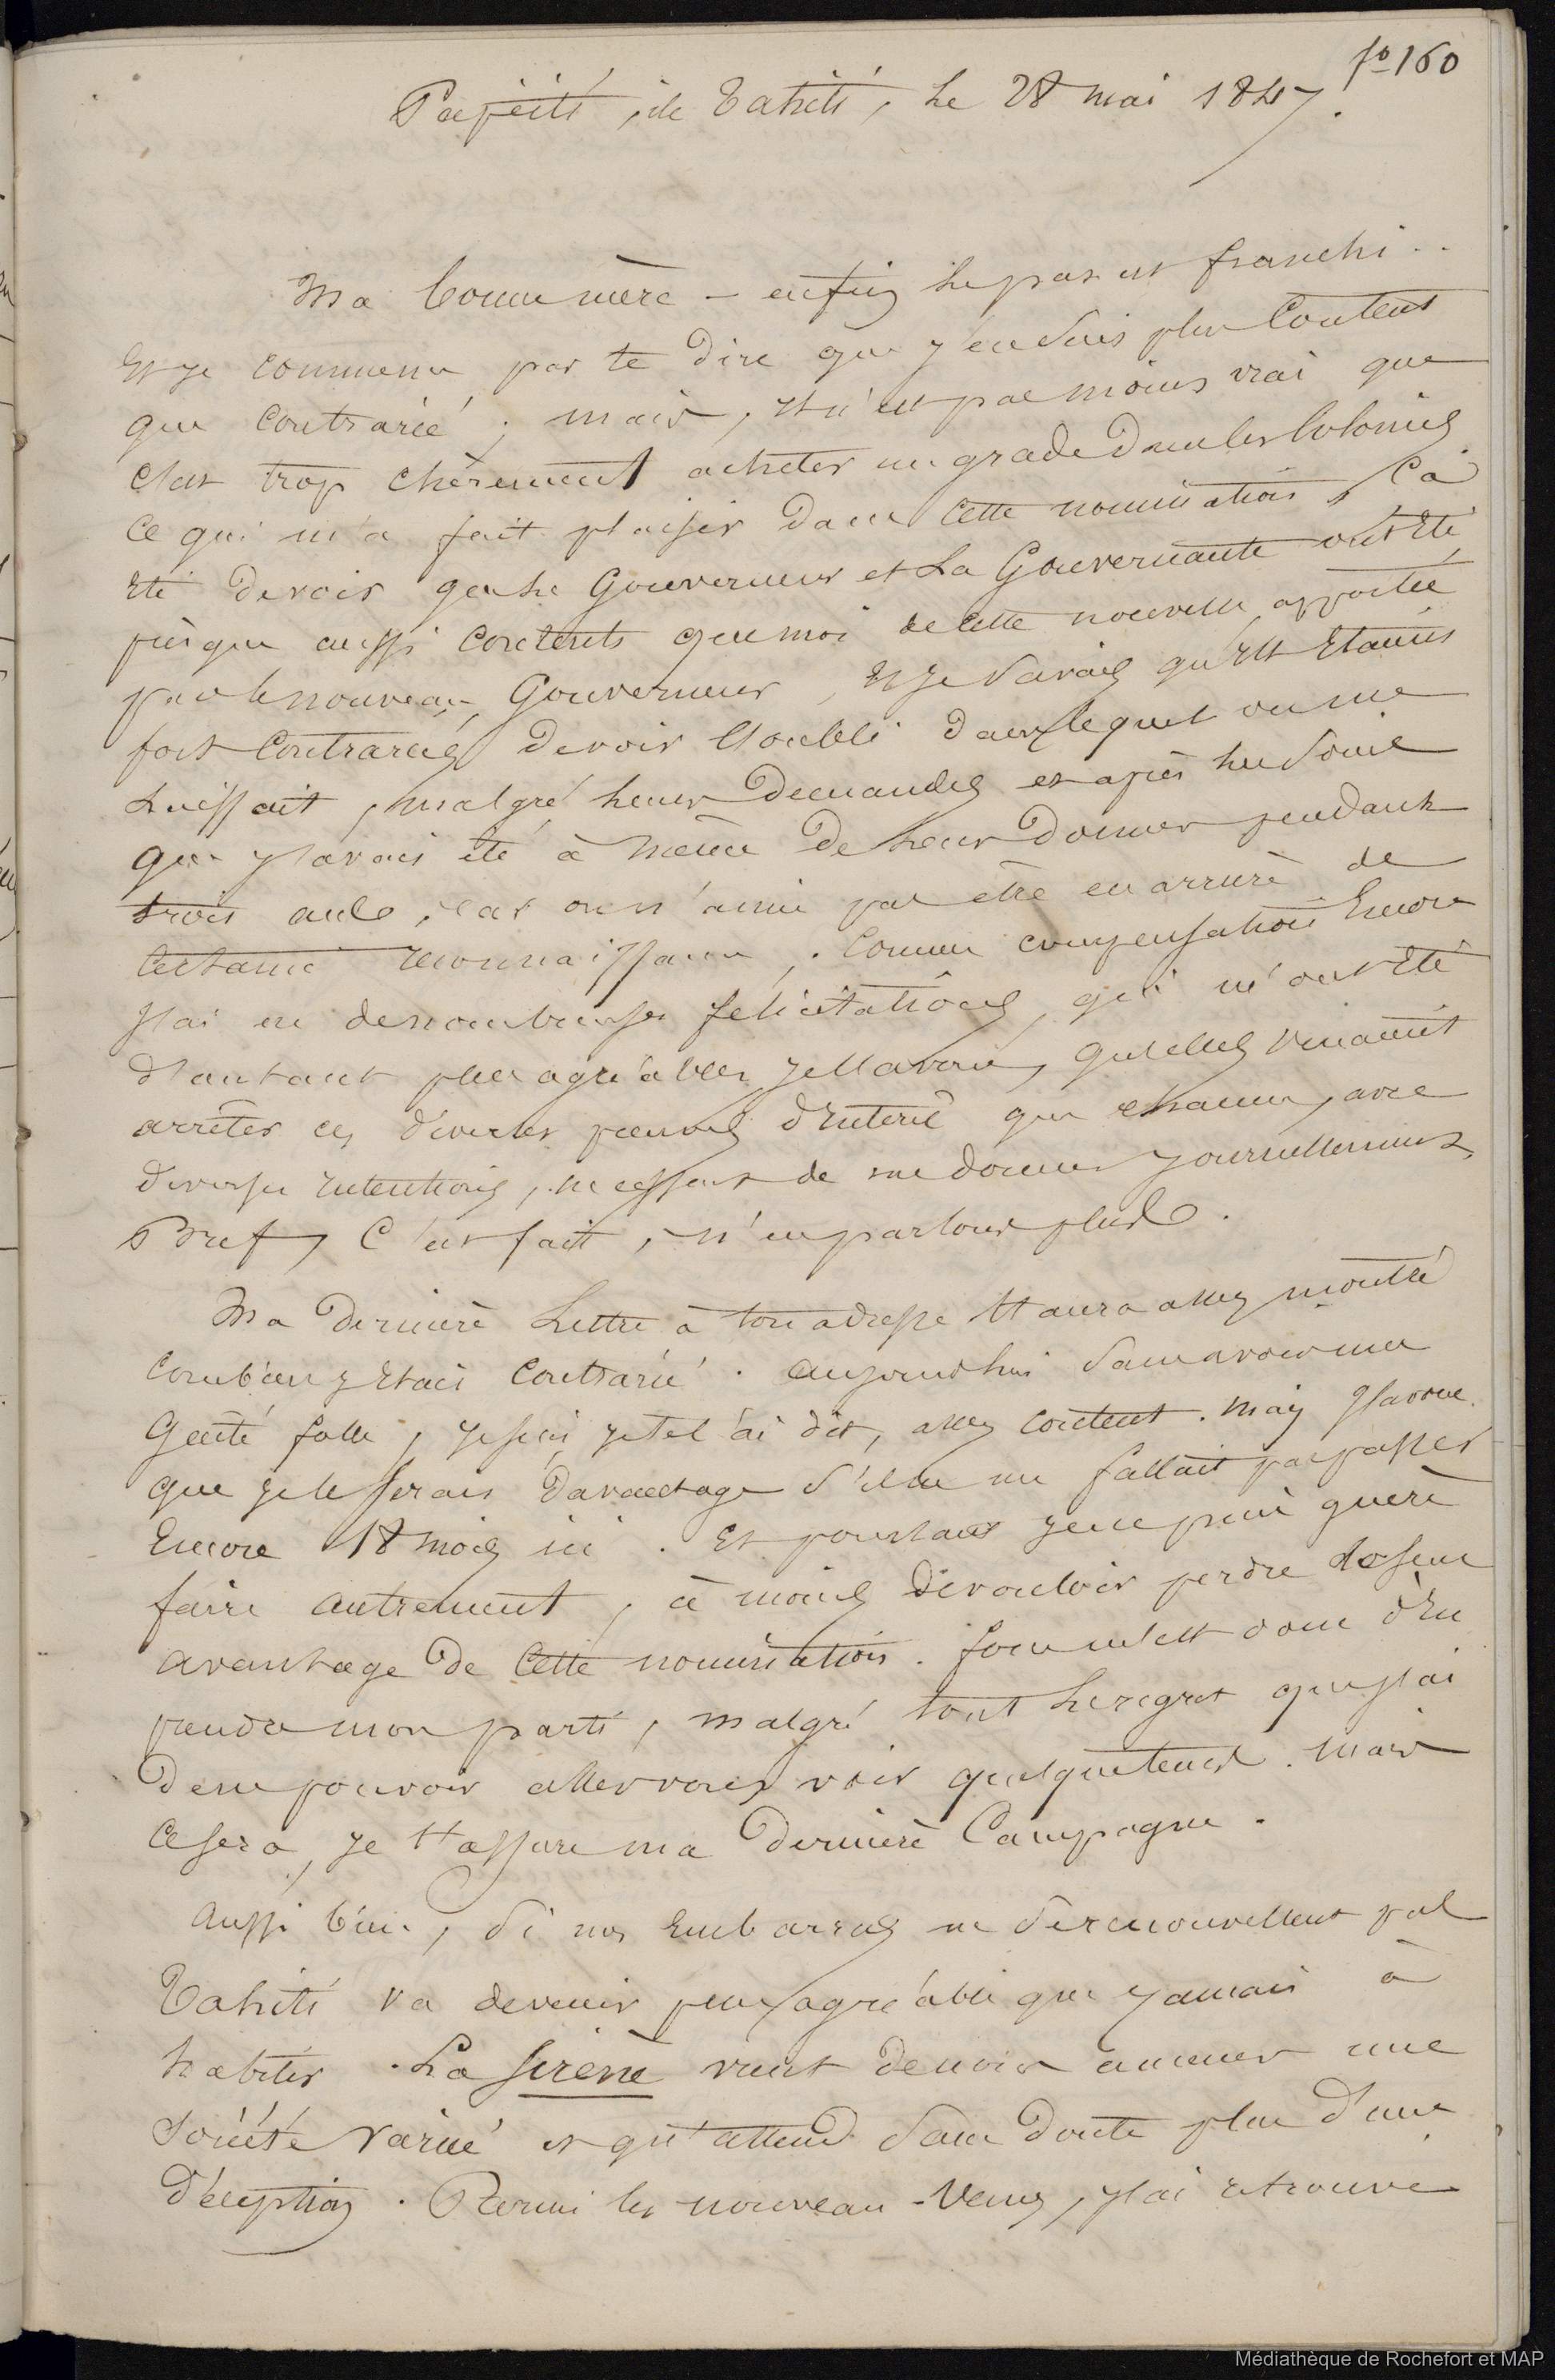 fo 160
Papéïti, île Tahiti, le 28 mai 1847.
Ma bonne mère – enfin le pas est franchi..
Et je commence par te dire que j'en suis plus content
que contrarié ; mais, il n'est pas moins vrai que
c'est trop chèrement acheter un grade dans les Colonies
Ce qui m'a fait plaisir dans cette nomination, ç'a
été de voir que le Gouverneur et la Gouvernante ont été
presque aussi contents que moi de cette nouvelle apportée
par le nouveau Gouverneur, Et je savais qu'ils étaient
fort contrariés de voir l'oubli dans lequel on me
laissait, malgré leurs demandes et après les soins
que j'avais été à même de leur donner pendant
trois ans, car on n'aime pas être en arrière de
certaine reconnaissance. Comme compensation Encore
j'ai eu de nombreuses félicitations, qui m'ont été
d'autant plus agréables je l'avoue, qu'elles venaient
arrêter ces diverses preuves d'Intérêt que chacun, avec
diverses Intentions, ne cessent de me donner journellement,
Bref, C'est fait, n'en parlons plus.
Ma dernière Lettre à ton adresse t'aura assez montré
combien j'étais contrarié. aujourd'hui sans avoir une
gaité folle, je suis, je te l'ai dit, assez content. Mais j'avoue
que je le serais davantage s'il ne me fallait pas passer
Encore 18 mois ici. Et pourtant je ne puis guère
faire autrement, à moins de vouloir perdre le seul
avantage de cette nomination. force m'est donc d'En
prendre mon parti, malgré tout le regret que j'ai
de ne pouvoir aller vous voir quelque tems. Mais
ce sera, je t'assure ma dernière Campagne.
Aussi bien, si nos Embarras ne se renouvellent pas
Tahiti va devenir plus agréable que jamais à
habiter. La Sirène vient de nous amener une
Société variée et qu'attend sans doute plus d'une
déception. Parmi les nouveau-venus, j'ai retrouvé
Médiathèque de Rochefort et MAP